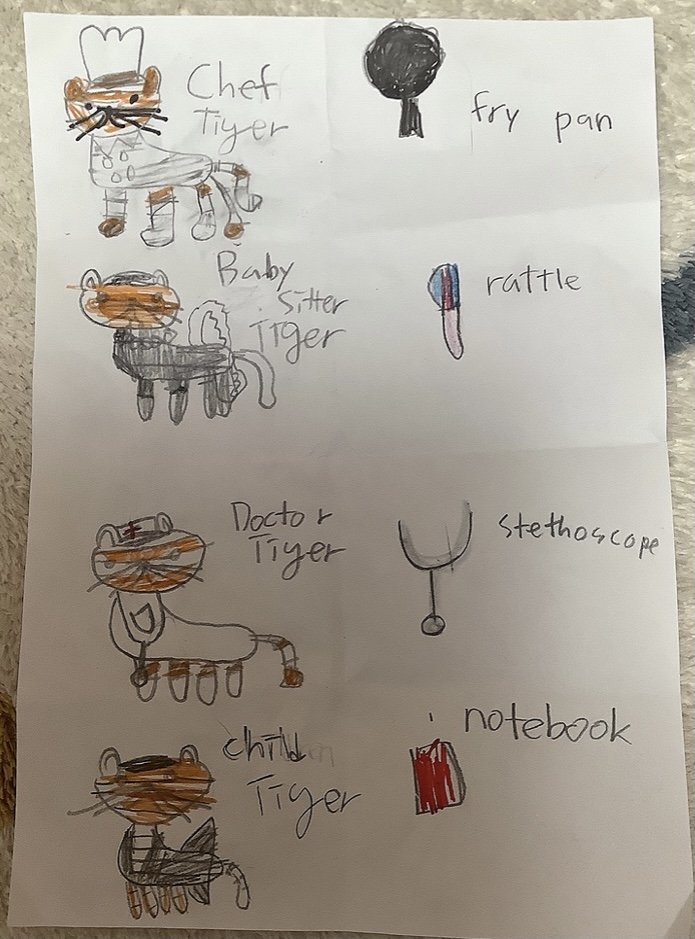 Chef
Tiger
fry pan
Baby
Sitter
Tiger
rattle
Doctor
Tiger
stethoscope
child
Tiger
notebook